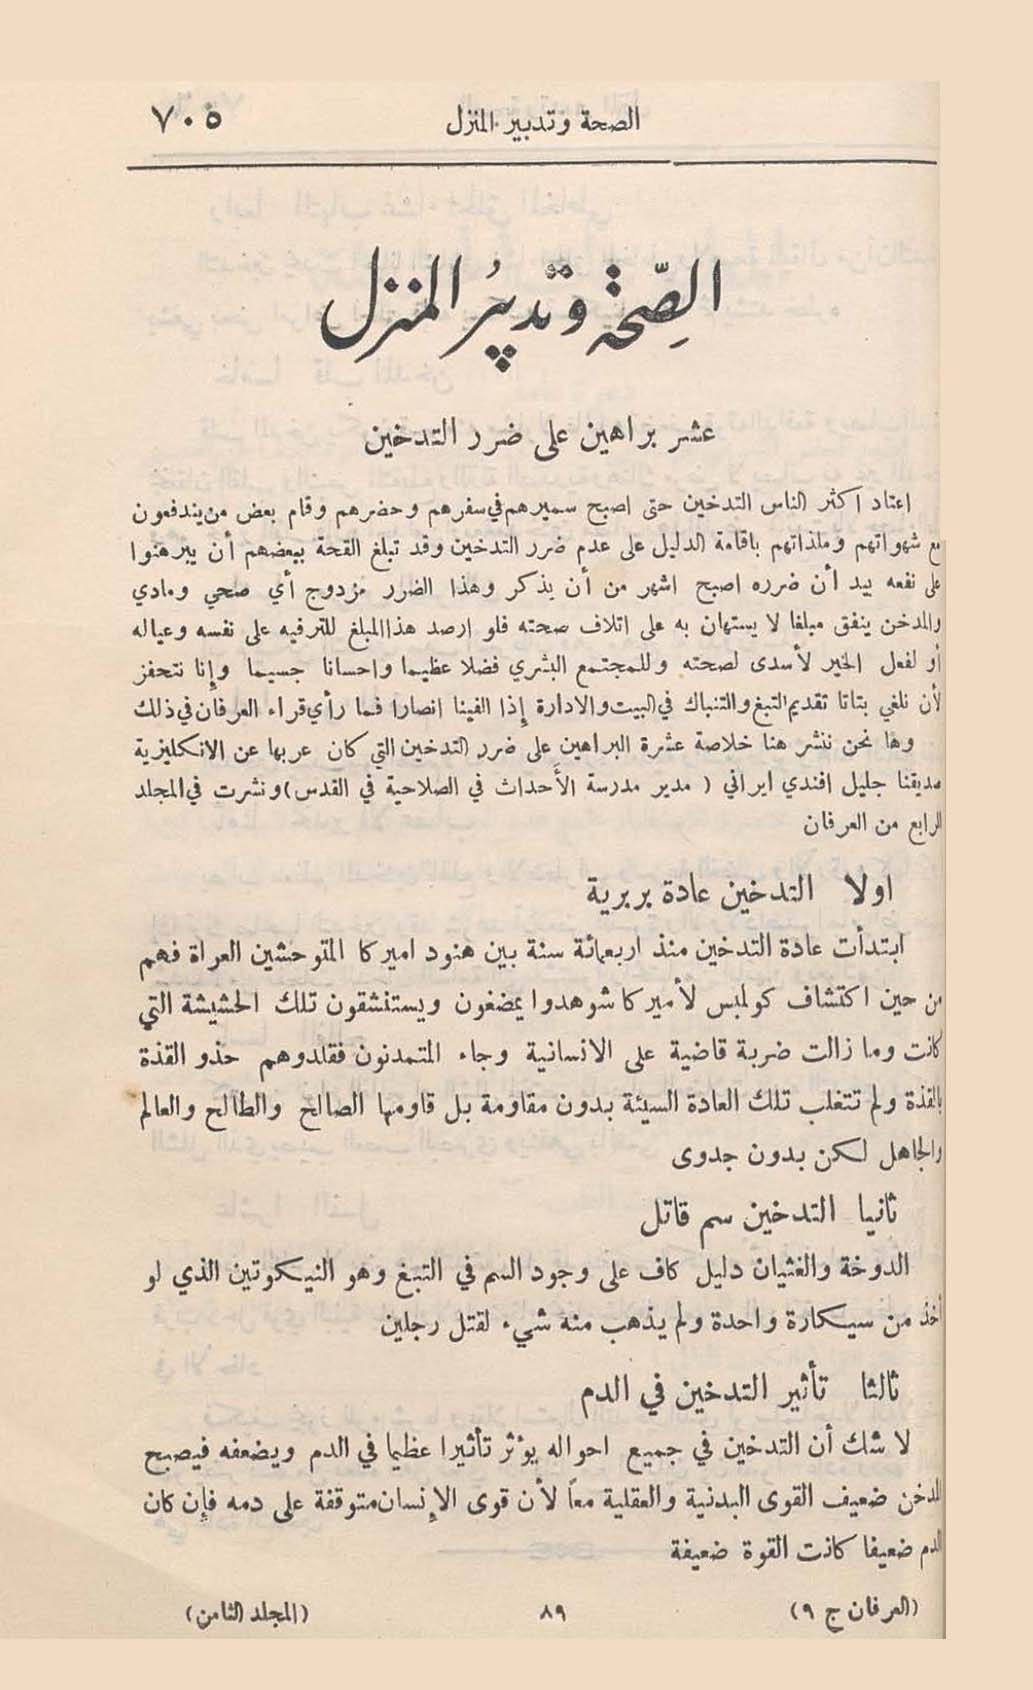 الصحة وتدبير المنزل ٧٠٥
الصِّحة وتدبيرُ المنزل
عشر براهين على ضرر التدخين
اعتاد اكثر الناس التدخين حتى اصبح سميرهم في سفرهم وحضرهم وقام بعض من يندفعون
مع شهواتهم وملذاتهم باقامة الدليل على عدم ضرر التدخين وقد تبلغ القحة ببعضهم أن يبرهنوا
على نفعه بيد أن ضرره اصبح اشهر من أن يذكر وهذا الضرر مزدوج أي صحي ومادي
والمدخن ينفق مبلغا لا يستهان به على اتلاف صحته فلو ارصد هذا المبلغ للترفيه على نفسه وعياله
أو لفعل الخير لأسدى لصحته وللمجتمع البشري فضلا عظيما واحسانا جسيما وإنا نتحفز
لأن نلغي بتاتا تقديم التبغ والتنباك في البيت والادارة إذا الفينا انصارا فما رأي قراء العرفان في ذلك
وها نحن ننشر هنا خلاصة عشرة البراهين على ضرر التدخين التي كان عربها عن الانكليزية
صديقنا جليل افندي ايراني ( مدير مدرسة الأَحداث في الصلاحية في القدس) ونشرت في المجلد
الرابع من العرفان
اولا التدخين عادة بربرية
ابتدأت عادة التدخين منذ اربعمائة سنة بين هنود اميركا المتوحشين العراة فهم
من حين اكتشاف كولمبس لأميركا شوهدوا يمضغون ويستنشقون تلك الحشيشة التي
كانت وما زالت ضربة قاضية على الانسانية وجاء المتمدنون فقلدوهم حذو القذة
بالقذة ولم تتغلب تلك العادة السيئة بدون مقاومة بل قاومها الصالح والطالح والعالم
والجاهل لكن بدون جدوى
ثانيا التدخين سم قاتل
الدوخة والغثيان دليل كاف على وجود السم في التبغ وهو النيكوتين الذي لو
أخذ من سيكارة واحدة ولم يذهب منه شيء لقتل رجلين
ثالثا تأثير التدخين في الدم
لا شك أن التدخين في جميع احواله يؤثر تأثيرا عظيما في الدم ويضعفه فيصبح
المدخن ضعيف القوى البدنية والعقلية معاً لأن قوى الإنسان متوقفة على دمه فإن كان
الدم ضعيفا كانت القوة ضعيفة
(العرفان ج ٩) ٨٩ (المجلد الثامن)